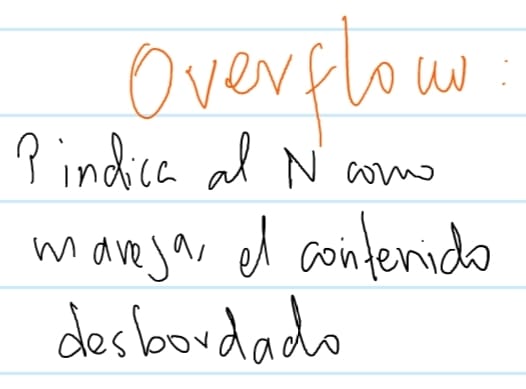 Overflow:
P indica al N como
manejar el contenido
desbordado